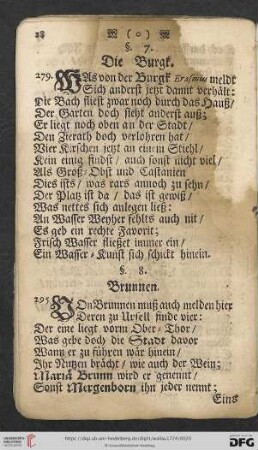 28 (o)
§. 7.
Die Burgk.
279. WAs von der Burgk Erasmus meldt
Sich anderst jetzt damit verhält:
Die Bach fliest zwar noch durch das Hauß/
Der Garten doch sieht anderst auß;
Er liegt noch oben an der Stadt/
Den Zierath doch verlohren hat/
Vier Kirschen jetzt an einm Stiehl/
Kein einig findst/ auch sonst nicht viel/
Als Groß-Obst und Castanien
Dies ists/ was rars annoch zu sehn/
Der Platz ist da/ das ist gewiß/
Was nettes sich anlegen ließ:
An Wasser Weyher fehlts auch nit/
Es geb ein rechte Favorit;
Frisch Wasser fliesset immer ein/
Ein Wasser-Kunst sich schickt hinein.
§. 8.
Brunnen.
295. VOn Brunnen muß auch melden hier
Deren zu Ursell finde vier:
Der eine liegt vorm Ober-Thor/
Was gebe doch die Stadt davor
Wann er zu führen wär hinein/
Ihr Nutzen brächt/ wie auch der Wein;
Maria Brunn wird er genennt/
Sonst Mergenborn ihn jeder nennt;
Eins
https://digi.ub.uni-heidelberg.de/diglit/
gefördert durch die
DFG